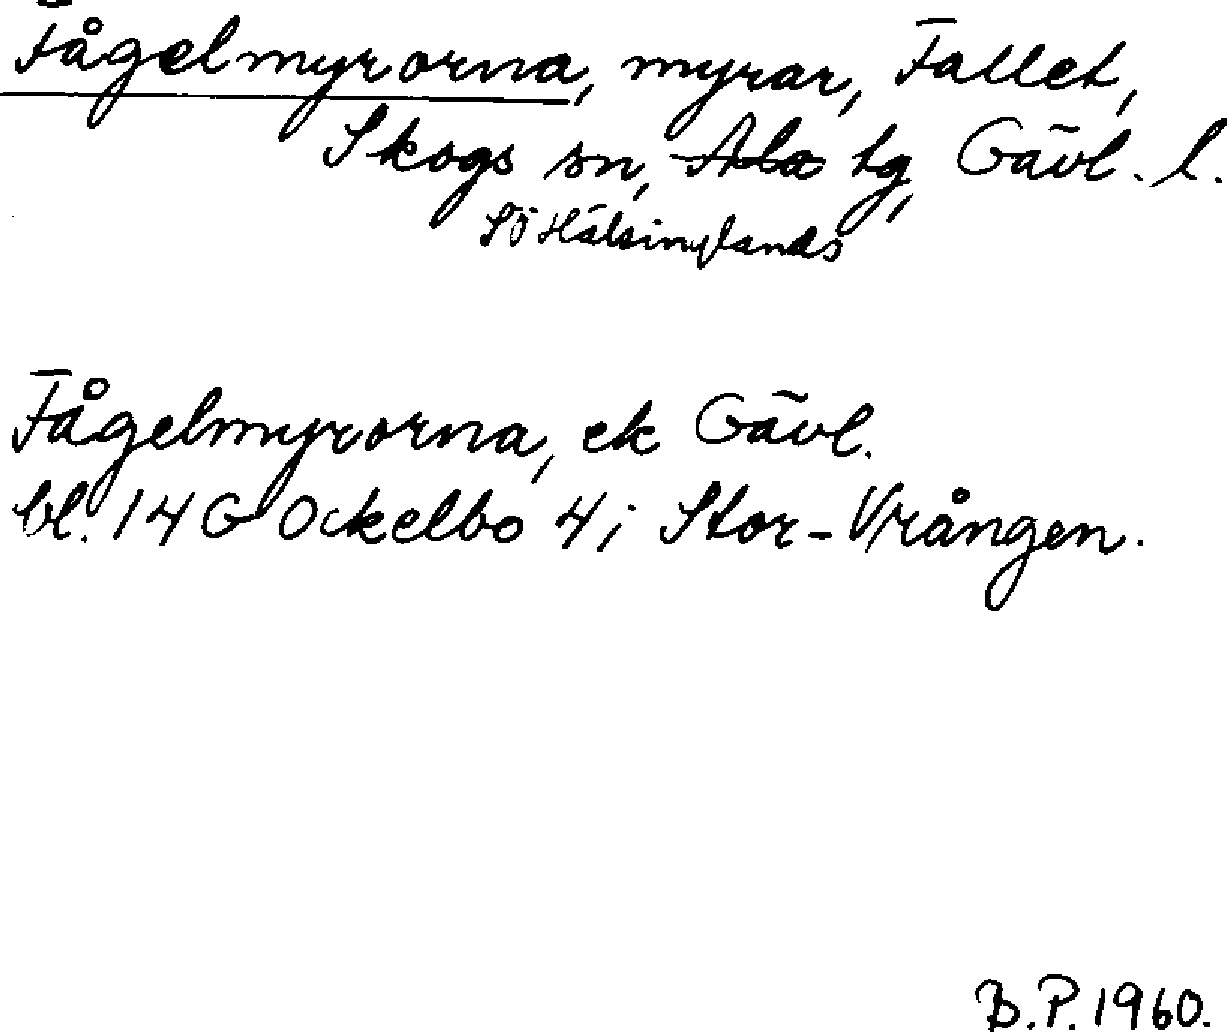 Fågelmyrorna, myrar, Fallet,
Skogs sn, Ala tg, Gävl. l.
Sö Hälsinglands
Fågelmyrorna, ek Gävl.
bl. 14 G Ockelbo 4 i Stor-Vrången.
B.P. 1960.